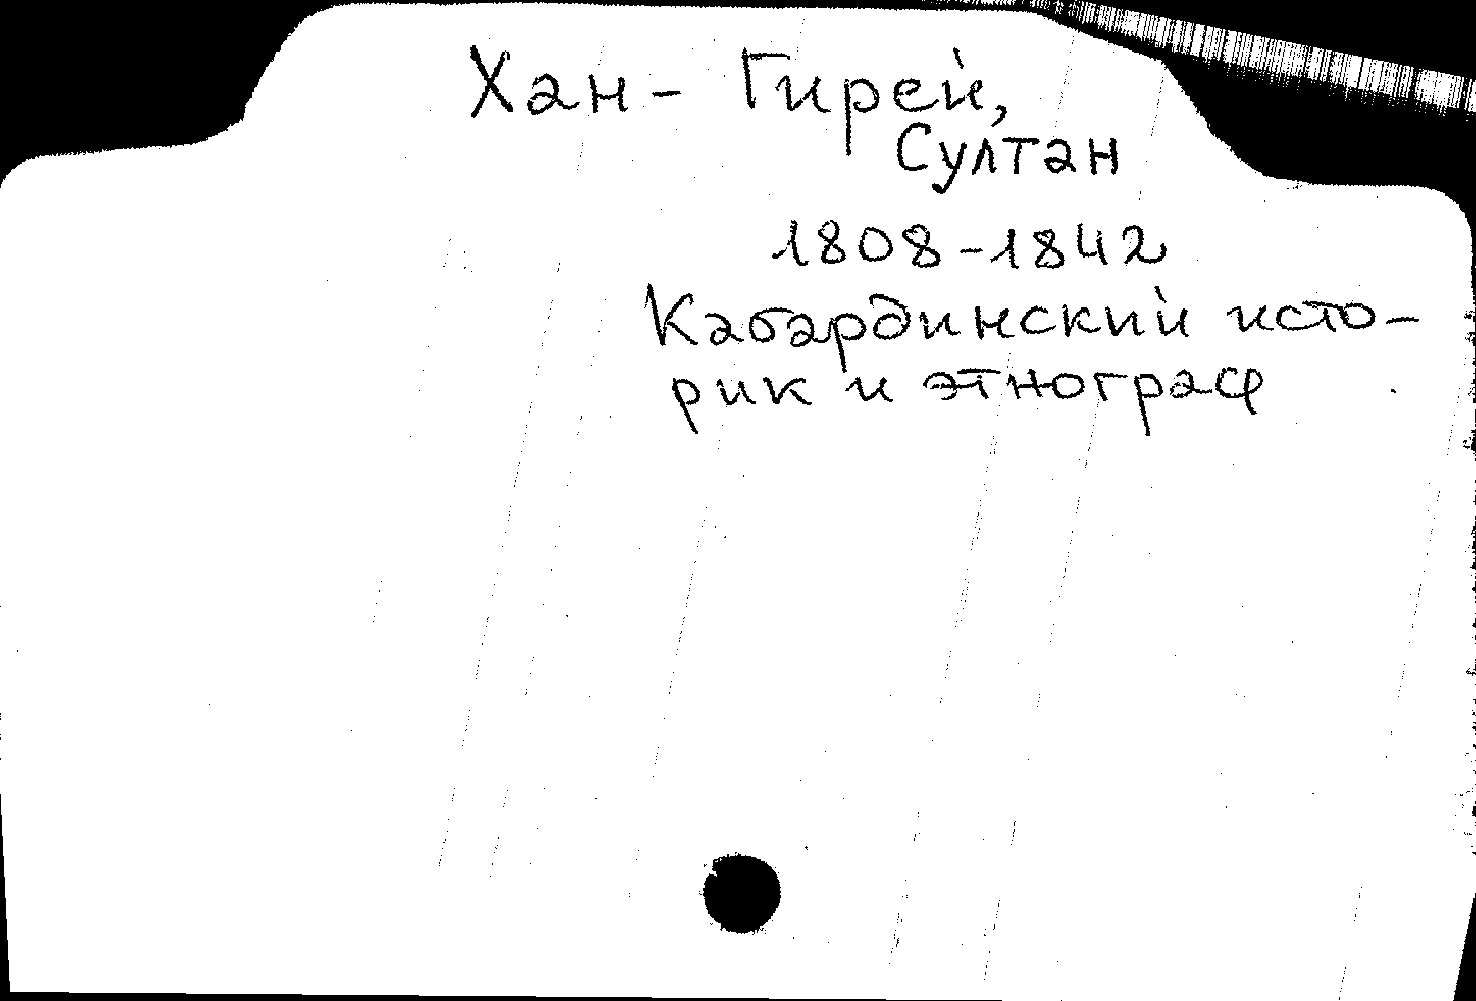 Хан - Гирей,
Султан
1808-1842
Кабардинский исто-
рик и этнограф